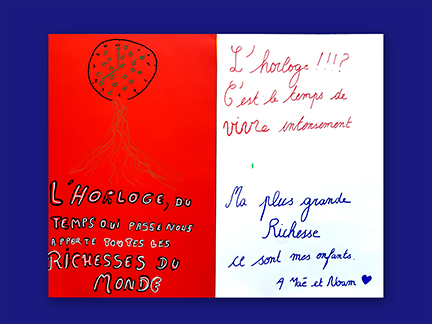 L'HORLOGE, DU
TEMPS QUI PASSE NOUS
APPORTE TOUTES LES
RICHESSES DU
MONDE
L'horloge !!!?
C'est le temps de
vivre intensement
Ma plus grande
Richesse
ce sont mes enfants.
A Maë et Noam